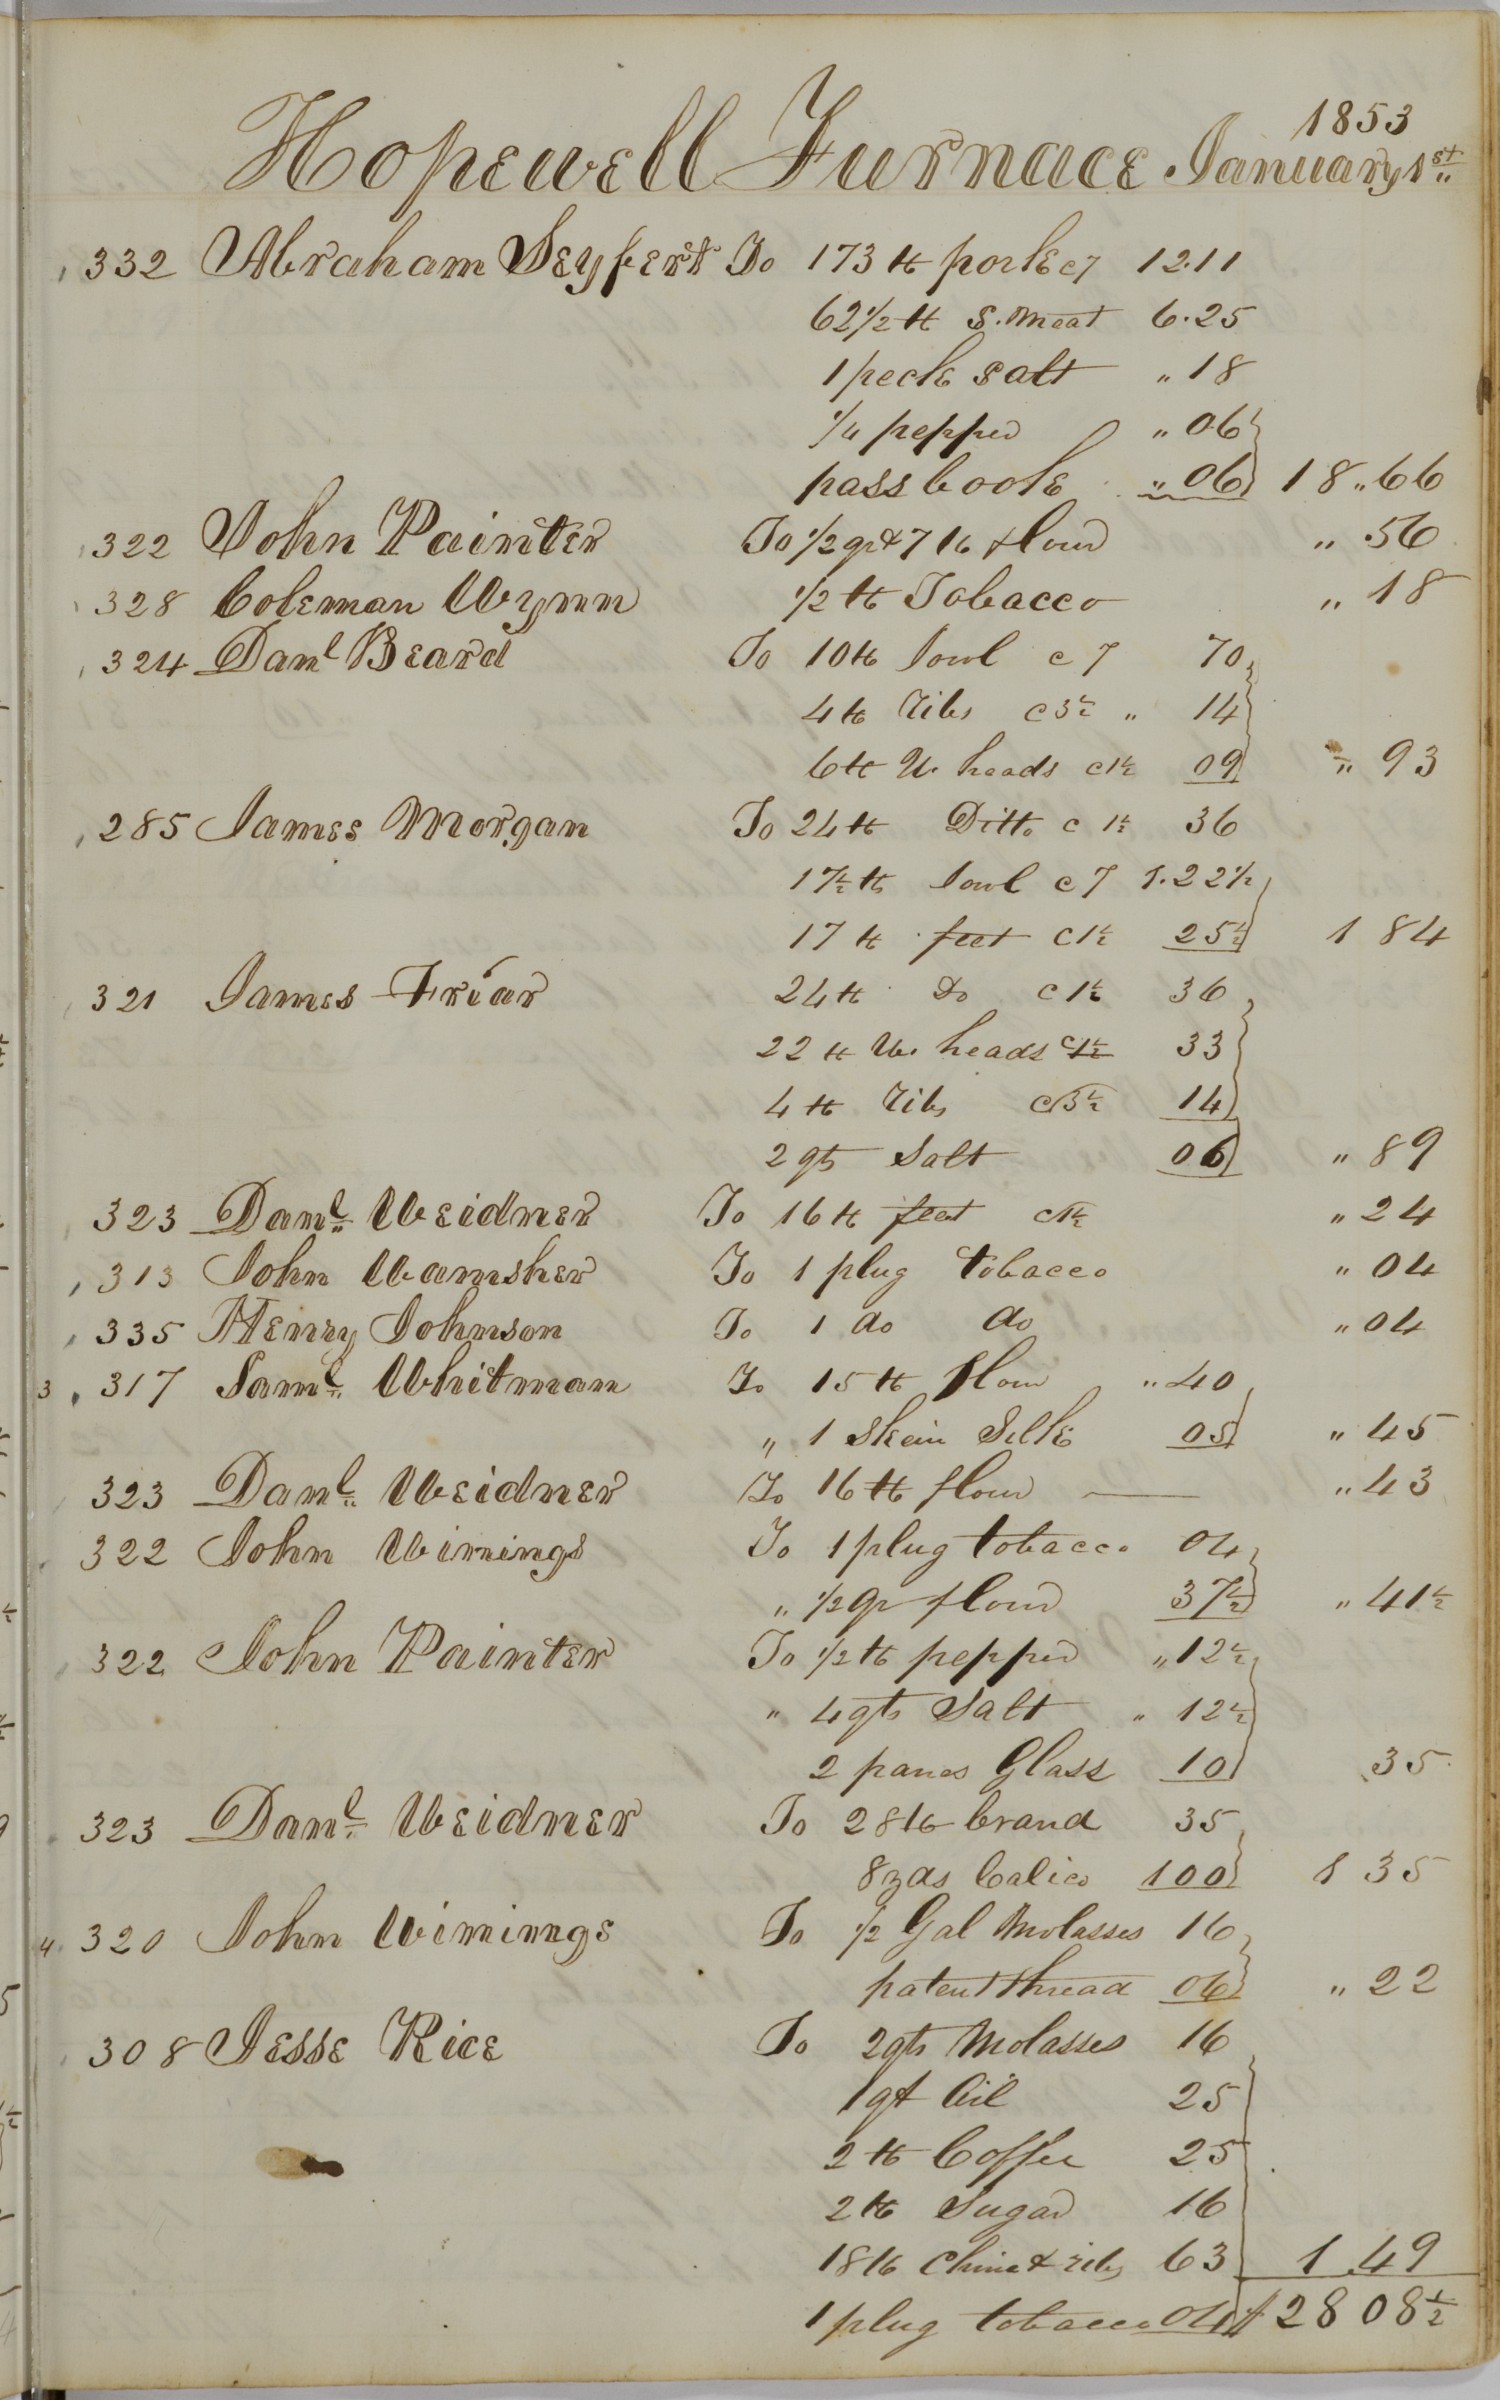 1853
Hopewell Furnace January 1st
332 Abraham Seyfert To 173 lb pork c7 12.11
62 1/2 lb S. Meat 6.25
1 peck salt " 18
1/4 pepper " 06
pass book " 06 18 " 66
322 John Painter To 1/2 qr & 7 lb flour " 56
328 Coleman Wynn 1/2 lb Tobacco " 18
324 Danl Beard To 10 lb Jowl c 7 70
4 lb Ribs c 3 1/2 " 14
6 lb W heads c 1 1/2 09 " 93
285 James Morgan To 24 lb Ditto c 1 1/2 36
17 1/2 lb Jowl c 7 1.22 1/2
17 lb feet c 1 1/2 25 1/2 1 84
321 James Friar 24 lb Do c 1 1/2 36
22 lb W. heads c 1 1/2 33
4 lb Ribs c 3 1/2 14
2 qts Salt 06 " 89
323 Danl Weidner To 16 lb feet c 1 1/2 " 24
313 John Wamsher To 1 plug tobacco " 04
335 Henry Johnson To 1 do do " 04
3 317 Saml Whitman To 15 lb flour " 40
" 1 Skein Silk 05 " 45
323 Danl Weidner To 16 lb flour " 43
322 John Winnings To 1 plug tobacco 04
" 1/2 qr flour 37 1/2 " 41 1/2
322 John Painter To 1/2 lb pepper " 12 1/2
" 4 qts Salt " 12 1/2
2 panes Glass 10 35
323 Danl Weidner To 28 lb brand 35
8 yds Calico 100 1 35
4 320 John Winnings To 1/2 Gal Molasses 16
patent thread 06 " 22
308 Jesse Rice To 2 qts Molasses 16
1 qt Oil 25
2 lb Coffee 25
2 lb Sugar 16
18 lb Chine & ribs 63 1.49
1 plug tobacco 04 $28 08 1/2